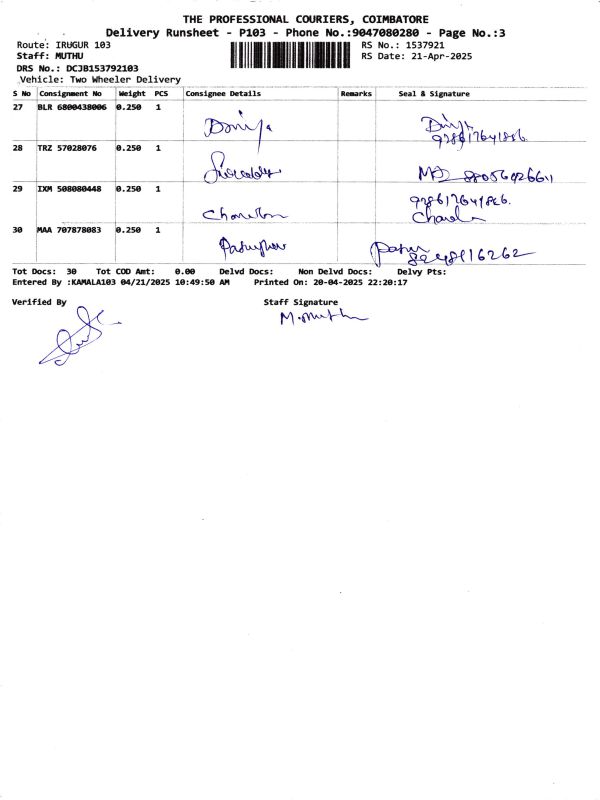 THE PROFESSIONAL COURIERS, COIMBATORE
Delivery Runsheet - P103 - Phone No.:9047080280 - Page No.:3
Route: IRUGUR 103 RS No.: 1537921
Staff: MUTHU RS Date: 21-Apr-2025
DRS No.: DCJB153792103
Vehicle: Two Wheeler Delivery
S No Consignment No Weight PCS Consignee Details Remarks Seal & Signature
27 BLR 6800438006 0.250 1
28 TRZ 57028076 0.250 1
29 IXM 508080448 0.250 1
30 MAA 707878083 0.250 1
Tot Docs: 30 Tot COD Amt: 0.00 Delvd Docs: Non Delvd Docs: Delvy Pts:
Entered By :KAMALA103 04/21/2025 10:49:50 AM Printed On: 20-04-2025 22:20:17
Verified By Staff Signature
M.Muthu